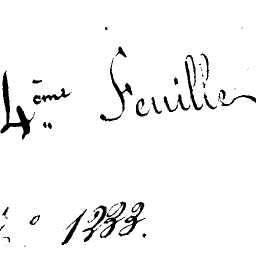 4ème Feuille
N° 1233.